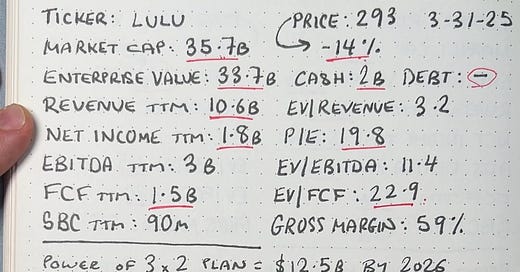 TICKER: LULU PRICE: 293 3-31-25
MARKET CAP: 35.7B → -14%
ENTERPRISE VALUE: 33.7B CASH: 2B DEBT: —
REVENUE TTM: 10.6B EV/REVENUE: 3.2
NET INCOME TTM: 1.8B P/E: 19.8
EBITDA TTM: 3B EV/EBITDA: 11.4
FCF TTM: 1.5B EV/FCF: 22.9
SBC TTM: 90M GROSS MARGIN: 59%
POWER OF 3x2 PLAN = $12.5B BY 2026